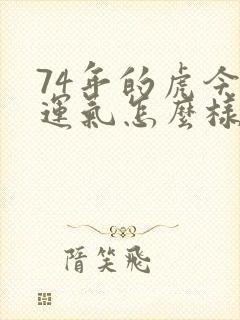 74年的虎今
運氣怎麼樣
隋笑飛